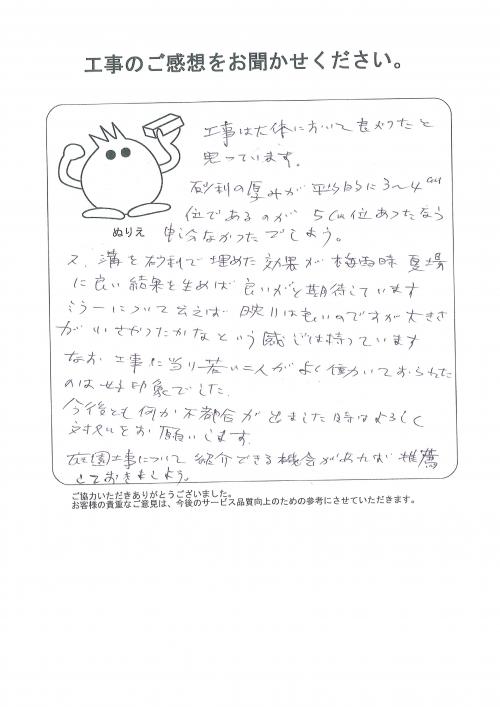 工事のご感想をお聞かせください。
工事は大体において良かったと
思っています。
砂利の厚みが平均的に3〜4cm
位であるのが5cm位あったなら
ぬりえ 申分なかったでしょう。
又、溝を砂利で埋めた効果が梅雨時夏場
に良い結果を生めば良いがと期待しています
ミラーについて云えば映りは良いのですが大きさ
が小さかったかなという感じは持っています
なお工事に当り若い二人がよく働いておられた
のは好印象でした。
今後とも何か不都合が出ました時はよろしく
対処をお願いします。
庭園工事について紹介できる機会があれば推薦
しておきましょう。
ご協力いただきありがとうございました。
お客様の貴重なご意見は、今後のサービス品質向上のための参考にさせていただきます。